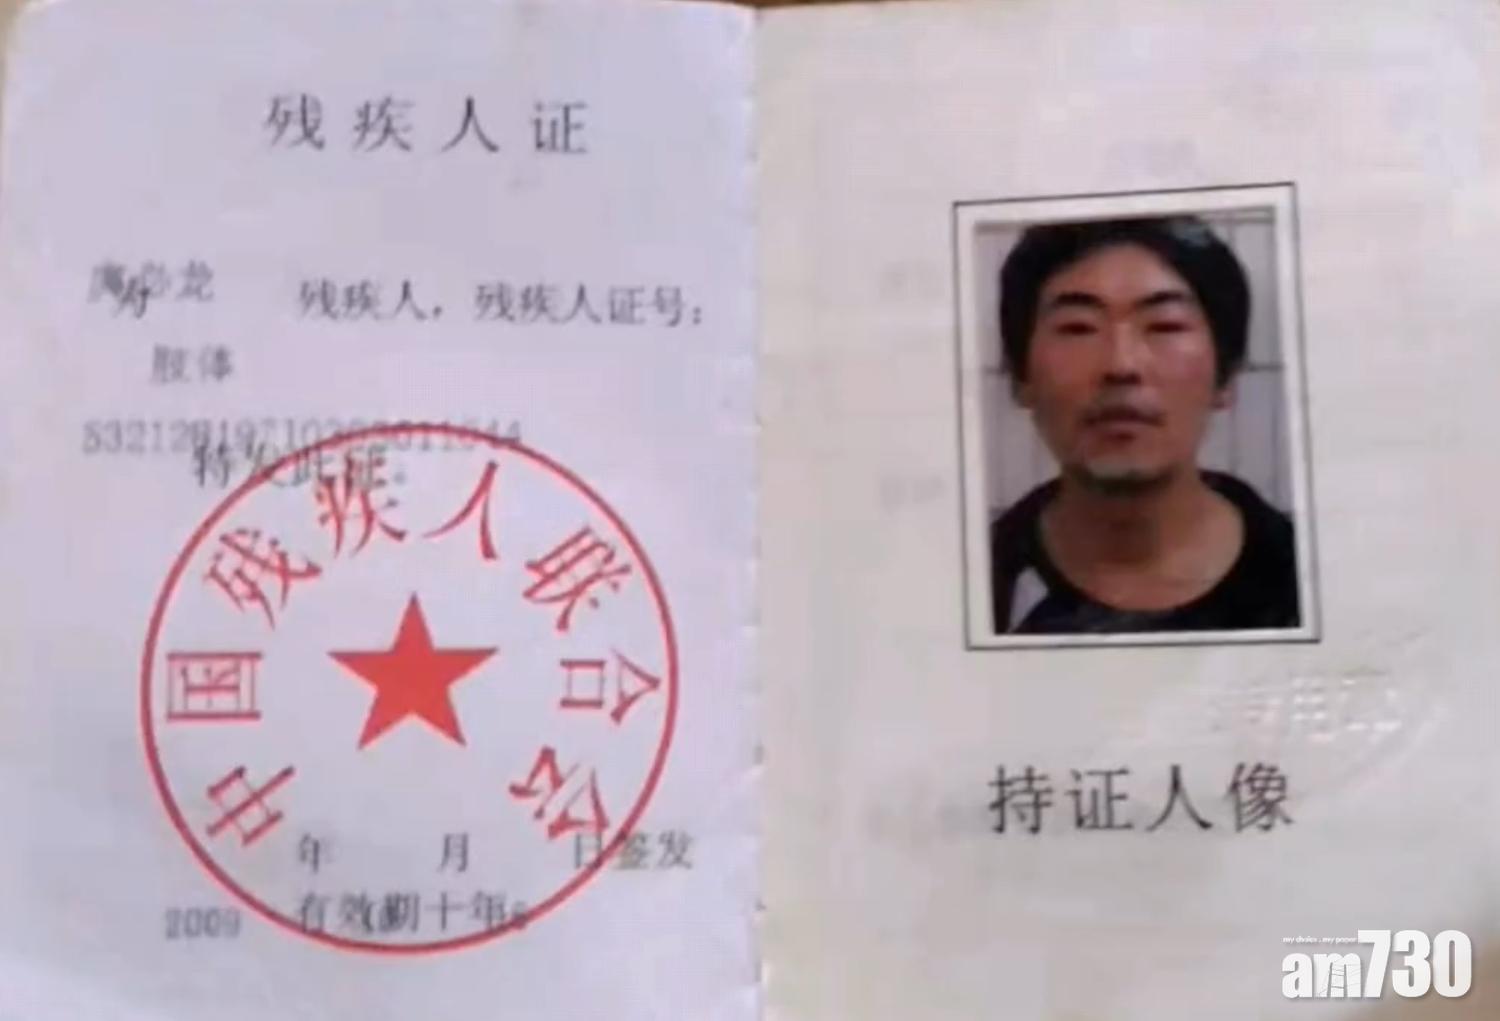 残疾人证
龙 残疾人，残疾人证号：
肢体
特发此证。
中国残疾人联合会
年 月 日签发
2009 有效期十年。
持证人像
my choice . my paper
am730